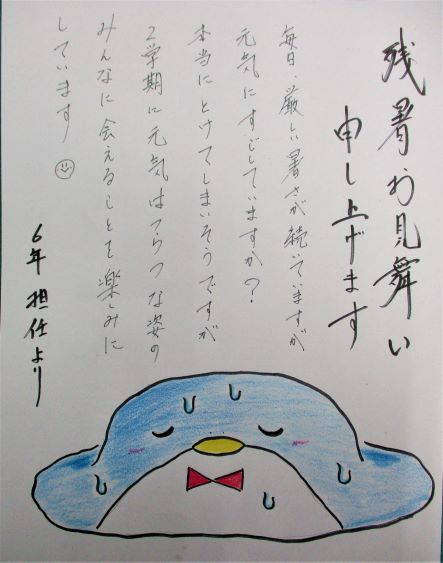 残暑お見舞い
申し上げます
毎日、厳しい暑さが続いていますが
元気にすごしていますか？
本当にとけてしまいそうですが
2学期に元気はつらつな姿の
みんなに会えることを楽しみに
しています☺
6年 担任より